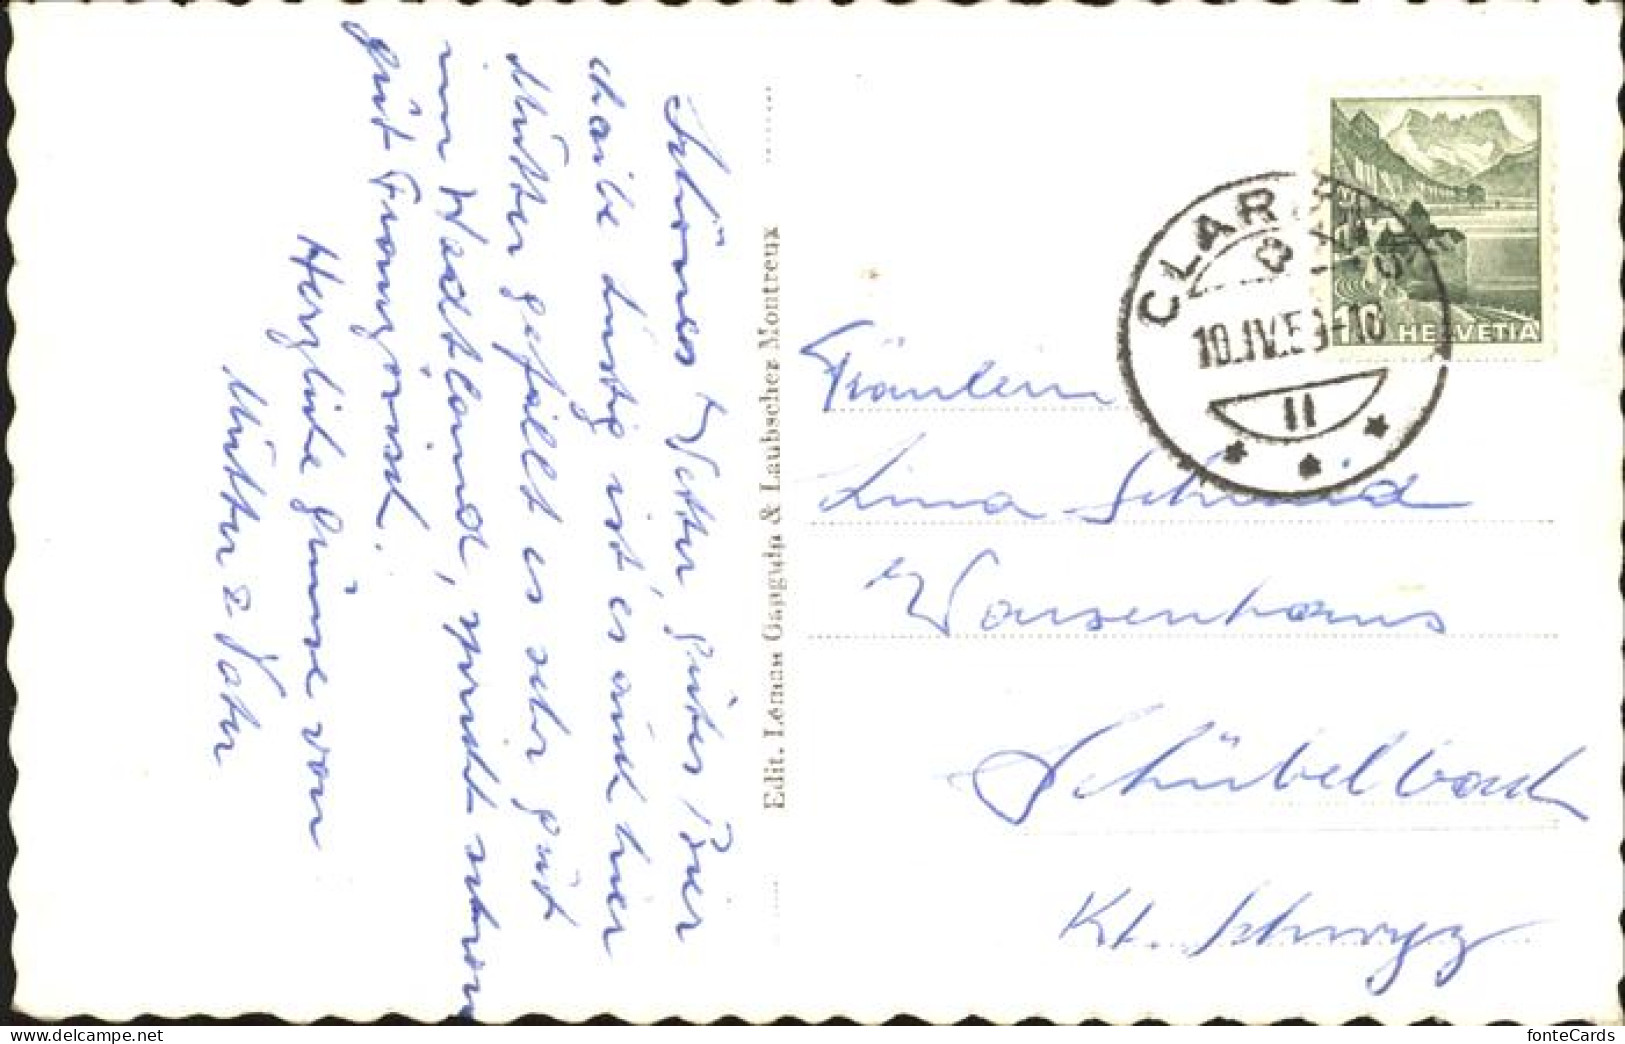 Schönes Wetter, gutes Bier
chaibe lustig ist es auch hier
Mutter gefällt es sehr gut
im Waadtland, spricht schon
gut Französisch.
Herzliche Grüsse von
Mutter & Vater
Edit. Léman Gapgyla & Laubscher Montreux
CLARENS
10.IV.59-10
II
10 HELVETIA
Fräulein
Lina Schmid
Waisenhaus
Schübelbach
Kt. Schwyz
delcampe.net
fonteCards